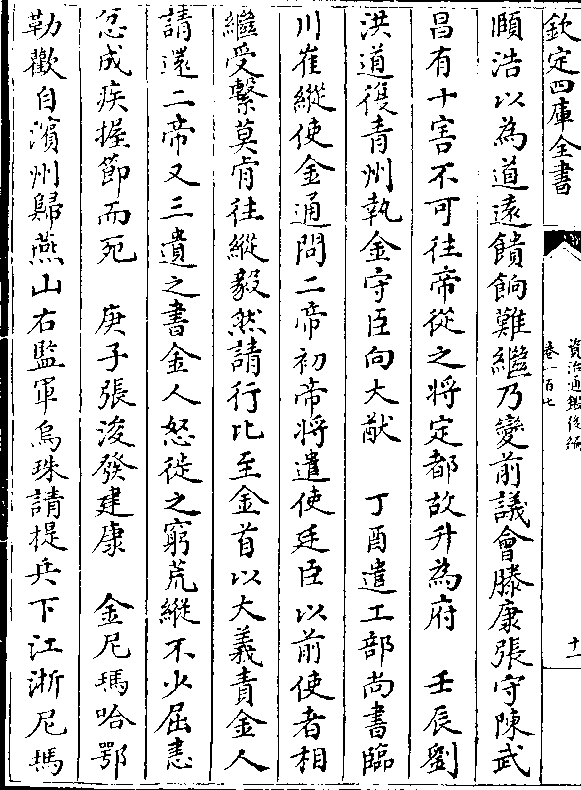 欽定四庫全書
資治通鑑後編
卷一百七
十一
頤浩以為道遠饋餉難繼乃變前議會滕康張守陳武
昌有十害不可往帝從之将定都故升為府　壬辰劉
洪道復青州執金守臣向大猷　丁酉遣工部尚書臨
川崔縱使金通問二帝初帝将遣使廷臣以前使者相
繼受繫莫肯往縱毅然請行比至金首以大義責金人
請還二帝又三遺之書金人怒徙之窮荒縱不少屈恚
忿成疾握節而死　庚子張浚發建康　金尼瑪哈鄂
勒歡自濱州歸燕山右監軍烏珠請提兵下江淛尼瑪